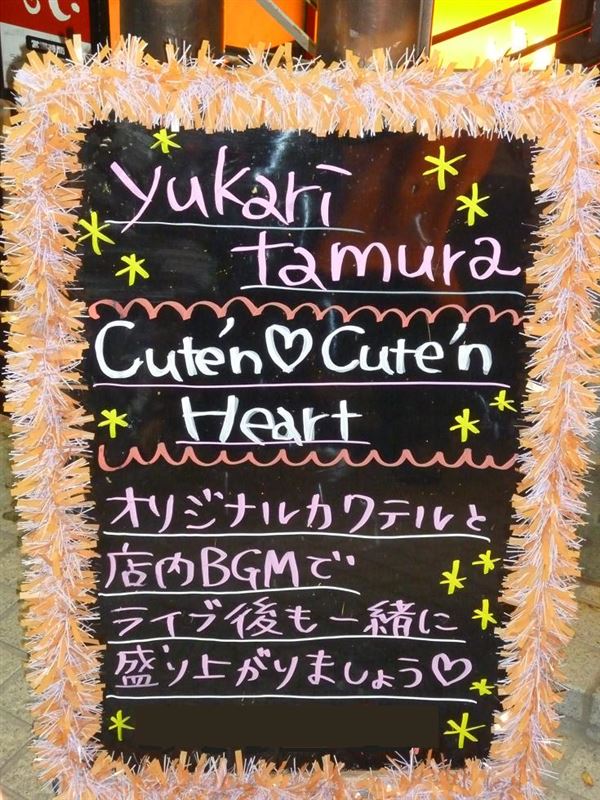 yukari
tamura
Cute'n♡Cute'n
Heart
オリジナルカクテルと
店内BGMで
ライブ後も一緒に
盛り上がりましょう♡